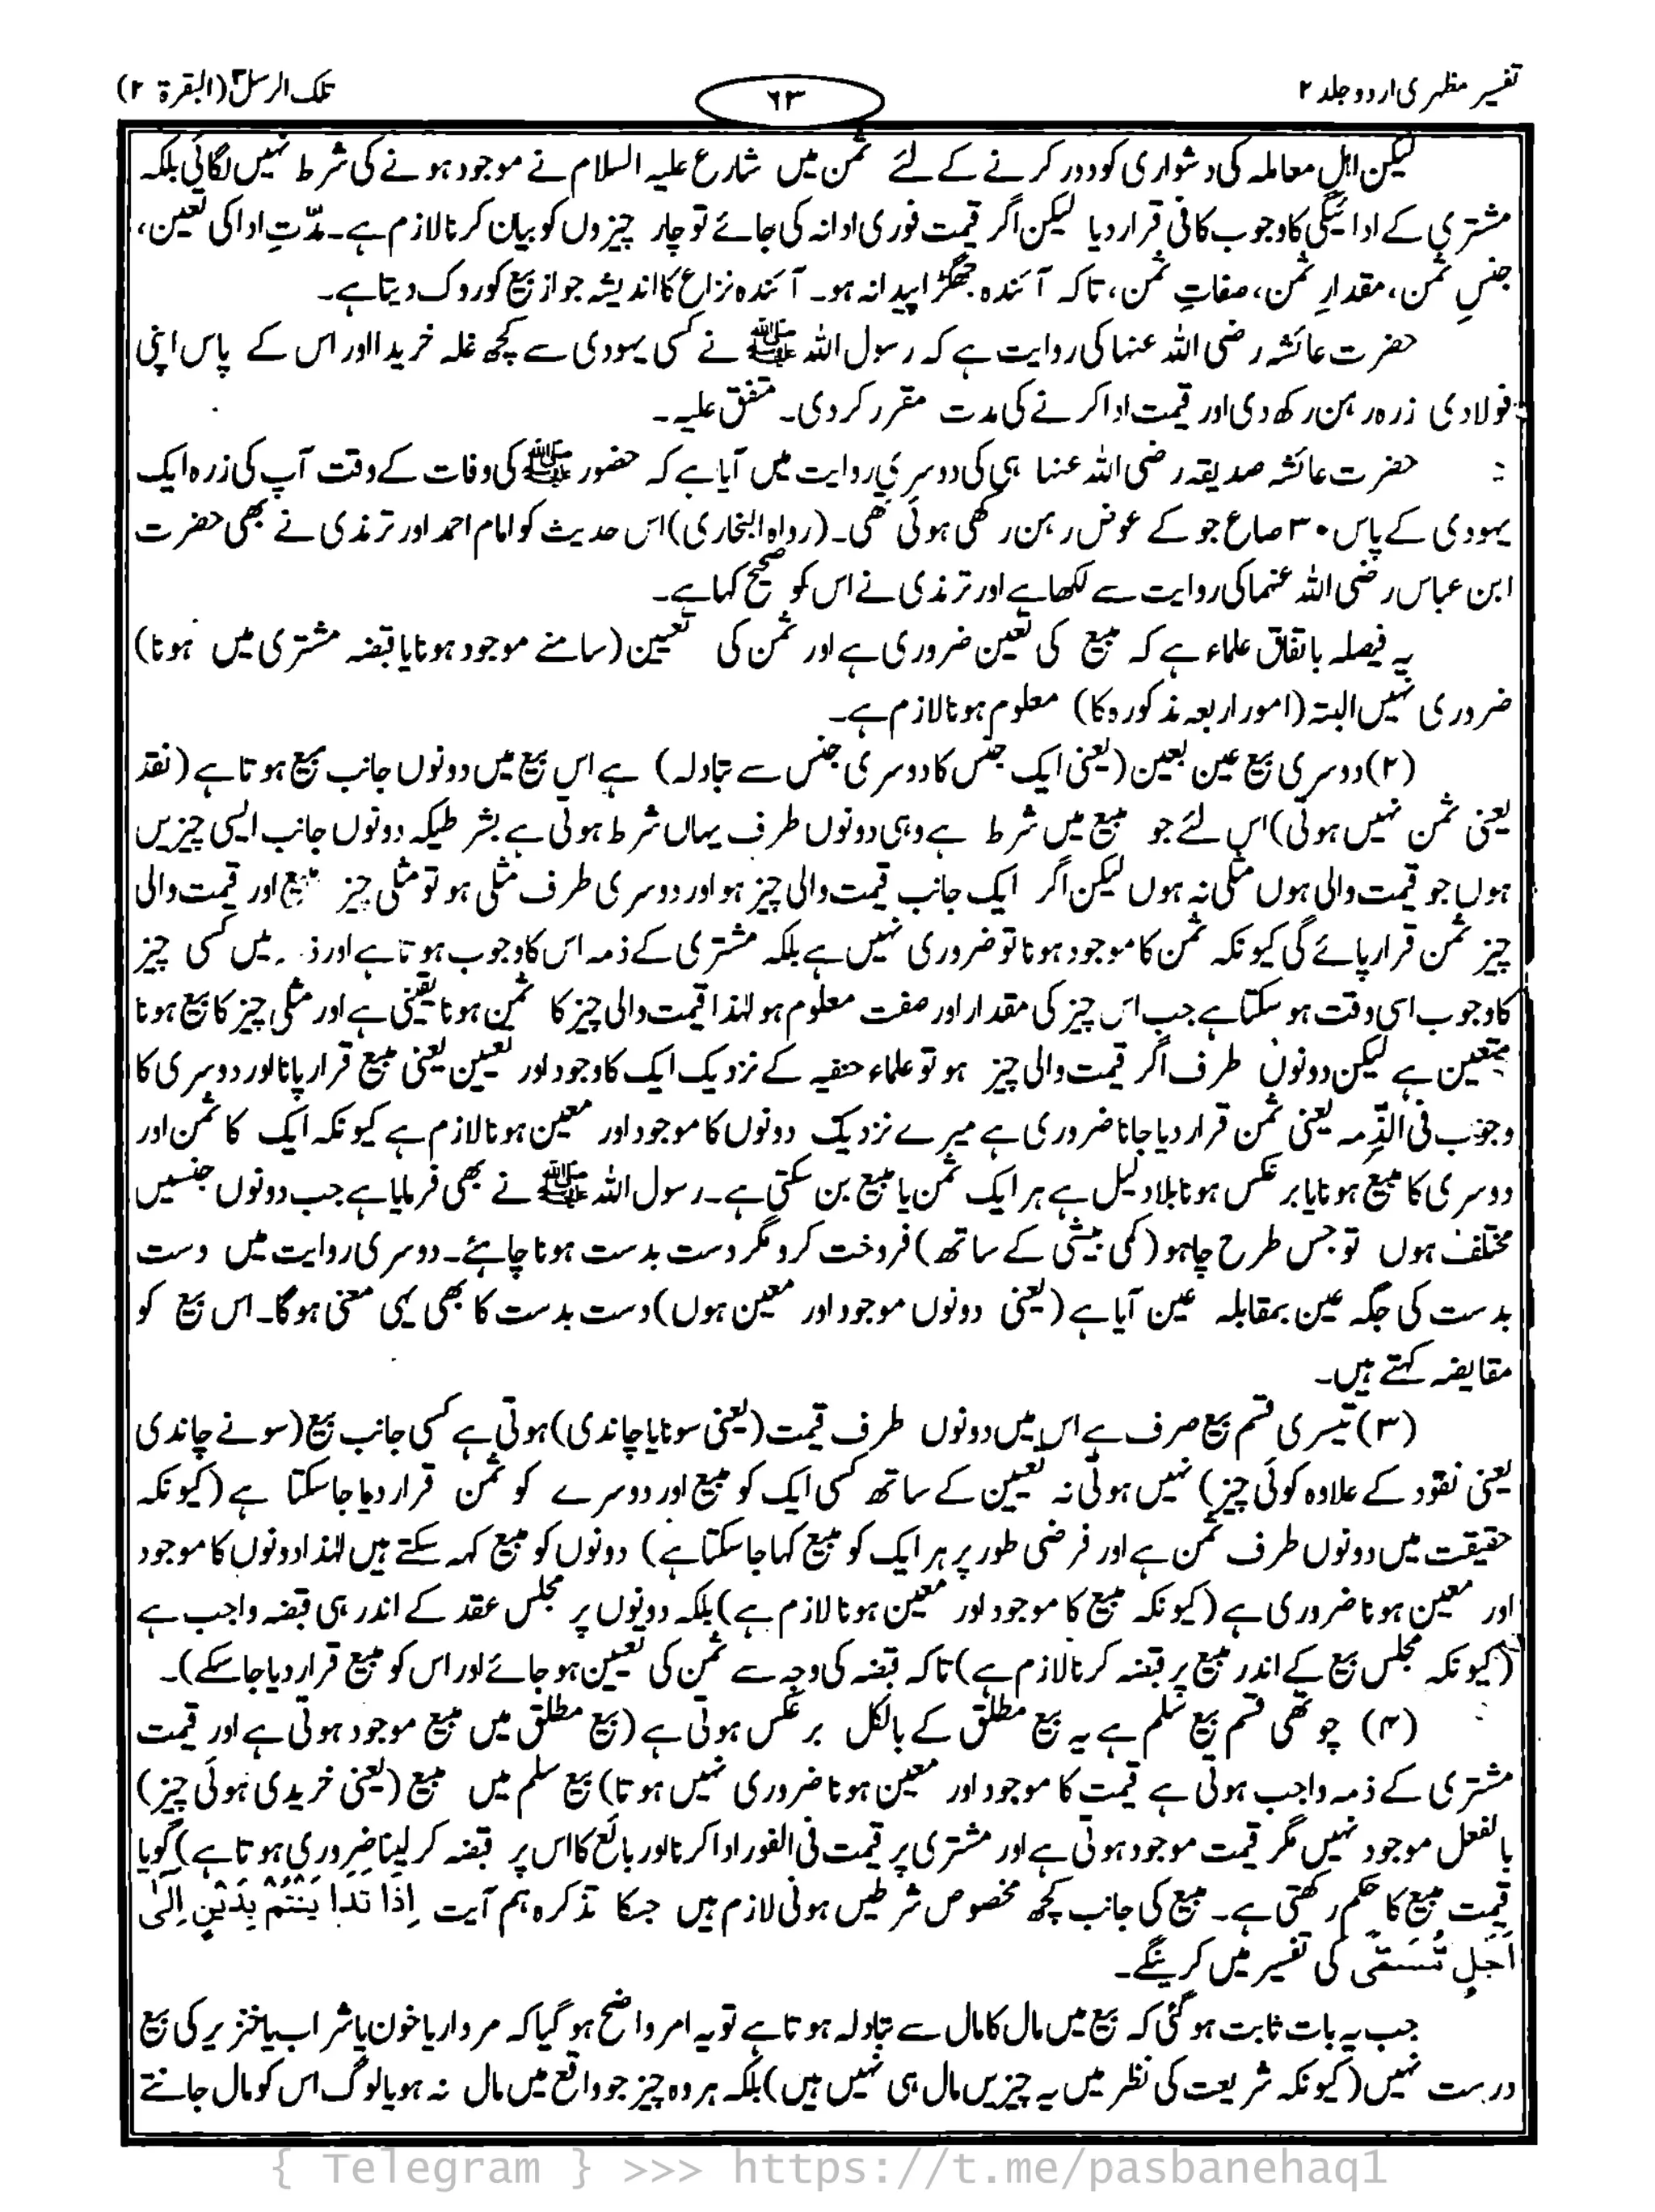 تفسیر مظہری اردو جلد ۲
۶۳
تلک الرسل ۳ (البقرة ۲)
لیکن اہلِ معاملہ کی دشواری کو دور کرنے کے لئے ثمن میں شارع علیہ السلام نے موجود ہونے کی شرط نہیں لگائی بلکہ
مشتری کے ادائیگی کا وجوب کافی قرار دیا لیکن اگر قیمت فوری ادا نہ کی جائے تو چار چیزوں کو بیان کرنا لازم ہے۔ مدّتِ ادا کی تعین،
جنسِ ثمن، مقدارِ ثمن، صفاتِ ثمن، تاکہ آئندہ جھگڑا پیدا نہ ہو۔ آئندہ نزاع کا اندیشہ جواز بیع کو روک دیتا ہے۔
حضرت عائشہ رضی اللہ عنہا کی روایت ہے کہ رسول اللہ ﷺ نے کسی یہودی سے کچھ غلہ خریدا اور اس کے پاس اپنی
فولادی زرہ رہن رکھ دی اور قیمت ادا کرنے کی مدت مقرر کر دی۔ متفق علیہ۔
حضرت عائشہ صدیقہ رضی اللہ عنہا ہی کی دوسری روایت میں آیا ہے کہ حضور ﷺ کی وفات کے وقت آپ کی زرہ ایک
یہودی کے پاس ۳۰ صاع جو کے عوض رہن رکھی ہوئی تھی۔ (رواہ البخاری) اس حدیث کو امام احمد اور ترمذی نے بھی حضرت
ابن عباس رضی اللہ عنہما کی روایت سے لکھا ہے اور ترمذی نے اس کو صحیح کہا ہے۔
یہ فیصلہ باتفاق علماء ہے کہ مبیع کی تعین ضروری ہے اور ثمن کی تعیین (سامنے موجود ہونا یا قبضہ مشتری میں ہونا)
ضروری نہیں البتہ (امور اربعہ مذکورہ کا) معلوم ہونا لازم ہے۔
(۲) دوسری بیع عین بعین (یعنی ایک جنس کا دوسری جنس سے تبادلہ) ہے اس بیع میں دونوں جانب مبیع ہوتا ہے (نقد
یعنی ثمن نہیں ہوتی) اس لئے جو مبیع میں شرط ہے وہی دونوں طرف یہاں شرط ہوتی ہے بشرطیکہ دونوں جانب ایسی چیزیں
ہوں جو قیمت والی ہوں مثلی نہ ہوں لیکن اگر ایک جانب قیمت والی چیز ہو اور دوسری طرف مثلی ہو تو مثلی چیز مبیع اور قیمت والی
چیز ثمن قرار پائے گی کیونکہ ثمن کا موجود ہونا تو ضروری نہیں ہے بلکہ مشتری کے ذمہ اس کا وجوب ہوتا ہے اور ذمہ میں کسی چیز
کا وجوب اسی وقت ہو سکتا ہے جب اس چیز کی مقدار اور صفت معلوم ہو لہٰذا قیمت والی چیز کا ثمن ہونا یقینی ہے اور مثلی چیز کا بیع ہونا
متعین ہے لیکن دونوں طرف اگر قیمت والی چیز ہو تو علماء حنفیہ کے نزدیک ایک کا وجود اور تعیین یعنی مبیع قرار پانا اور دوسری کا
وجوب فی الذّمہ یعنی ثمن قرار دیا جانا ضروری ہے میرے نزدیک دونوں کا موجود اور معین ہونا لازم ہے کیونکہ ایک کا ثمن اور
دوسری کا مبیع ہونا یا برعکس ہونا بلا دلیل ہے ہر ایک ثمن یا مبیع بن سکتی ہے۔ رسول اللہ ﷺ نے بھی فرمایا ہے جب دونوں جنسیں
مختلف ہوں تو جس طرح چاہو (کمی بیشی کے ساتھ) فروخت کرو مگر دست بدست ہونا چاہئے۔ دوسری روایت میں دست
بدست کی جگہ عین بمقابلہ عین آیا ہے (یعنی دونوں موجود اور معین ہوں) دست بدست کا بھی یہی معنی ہوگا۔ اس بیع کو
مقایضہ کہتے ہیں۔
(۳) تیسری قسم بیع صرف ہے اس میں دونوں طرف قیمت (یعنی سونا یا چاندی) ہوتی ہے کسی جانب بیع (سونے چاندی
یعنی نقود کے علاوہ کوئی چیز) نہیں ہوتی نہ تعیین کے ساتھ کسی ایک کو مبیع اور دوسرے کو ثمن قرار دیا جا سکتا ہے (کیونکہ
حقیقت میں دونوں طرف ثمن ہے اور فرضی طور پر ہر ایک کو مبیع کہا جا سکتا ہے) دونوں کو مبیع کہہ سکتے ہیں لہٰذا دونوں کا موجود
اور معین ہونا ضروری ہے (کیونکہ مبیع کا موجود اور معین ہونا لازم ہے) بلکہ دونوں پر مجلس عقد کے اندر ہی قبضہ واجب ہے
(کیونکہ مجلس بیع کے اندر مبیع پر قبضہ کرنا لازم ہے) تاکہ قبضہ کی وجہ سے ثمن کی تعیین ہو جائے اور اس کو مبیع قرار دیا جا سکے)۔
(۴) چوتھی قسم بیع سلم ہے یہ بیع مطلق کے بالکل برعکس ہوتی ہے (بیع مطلق میں مبیع موجود ہوتی ہے اور قیمت
مشتری کے ذمہ واجب ہوتی ہے قیمت کا موجود اور معین ہونا ضروری نہیں ہوتا) بیع سلم میں مبیع (یعنی خریدی ہوئی چیز)
بالفعل موجود نہیں مگر قیمت موجود ہوتی ہے اور مشتری پر قیمت فی الفور ادا کرنا اور بائع کا اس پر قبضہ کر لینا ضروری ہوتا ہے) گویا
قیمت مبیع کا حکم رکھتی ہے۔ مبیع کی جانب کچھ مخصوص شرطیں ہونی لازم ہیں جسکا تذکرہ ہم آیت اِذَا تَدَا یَنْتُمْ بِدَیْنٍ اِلٰی
اَجَلٍ مُّسَمًّی کی تفسیر میں کرینگے۔
جب یہ بات ثابت ہو گئی کہ بیع میں مال کا مال سے تبادلہ ہوتا ہے تو یہ امر واضح ہو گیا کہ مردار یا خون یا شراب یا خنزیر کی بیع
درست نہیں (کیونکہ شریعت کی نظر میں یہ چیزیں مال ہی نہیں ہیں) بلکہ ہر وہ چیز جو واقع میں مال نہ ہو یا لوگ اس کو مال جانتے
{ Telegram } >>> https://t.me/pasbanehaq1